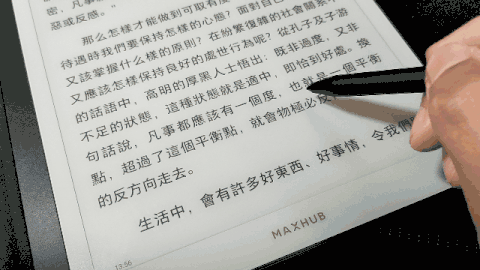 惡或反感。”
那么怎樣才能做到可取有度
待遇時我們要保持怎樣的心態？面對自
又該掌握什么樣的原則？在紛繁復雜的社會關系
又應該怎樣保持良好的處世行為呢？從孔子及子游
的話語中，高明的厚黑人士悟出，既非過度，又非
不足的狀態，這種狀態就是適中，即恰到好處。換
句話說，凡事都應該有一個度，也就是一個平衡
點，超過了這個平衡點，就會物極必反
的反方向走去。
生活中，會有許多好東西、好事情，令我們
13:56
MAXHUB